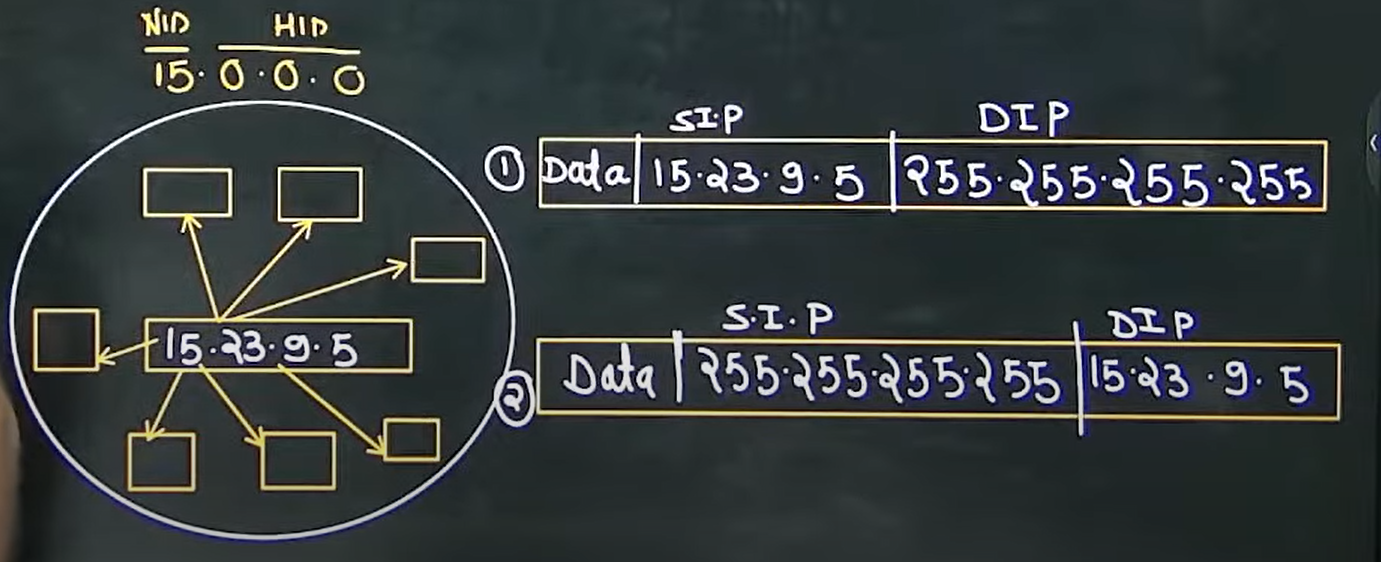 NID HID
15.0.0.0
S.I.P DIP
① Data 15.23.9.5 255.255.255.255
15.23.9.5
S.I.P DIP
② Data 255.255.255.255 15.23.9.5